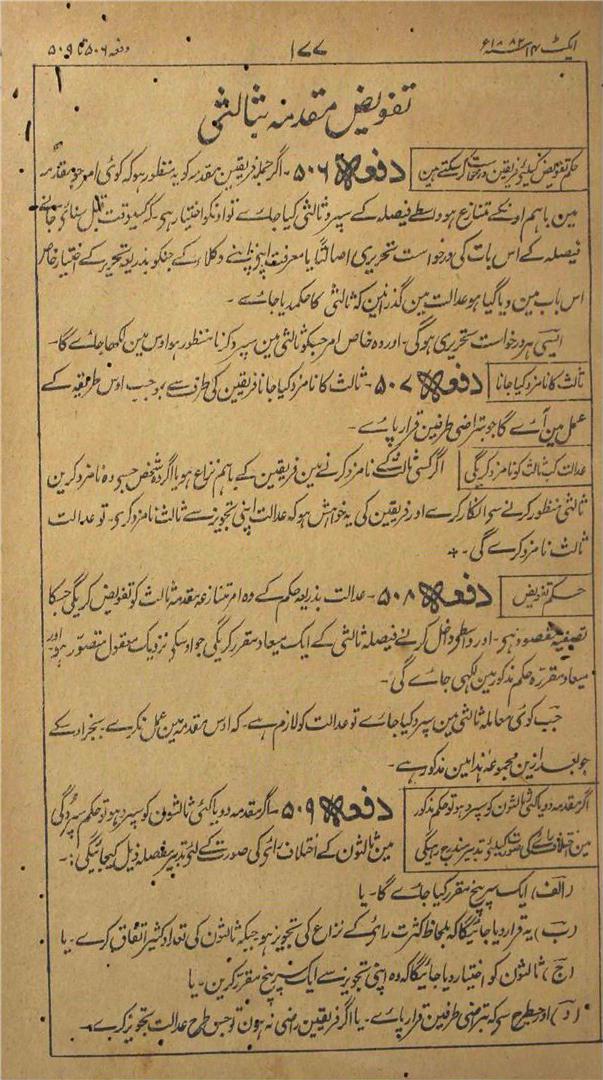 ایکٹ ۱۴ سنہ ۱۸۸۲ء
۱۷۷
دفعہ ۵۰۶ تا ۵۰۹
تفویض مقدمہ بثالثی
حکم تفویض کیلئے فریقین درخواست کرسکتے ہین
دفعہ ۵۰۶ ۔ اگر جملہ فریقین مقدمہ کو یہ منظور ہو کہ کوئی امر جو مقدمہ
مین باہم اونکے متنازع ہو واسطے فیصلہ کے سپرد ثالثی کیا جاے تو اونکو اختیار ہی کہ کسیوقت قبل سنائی جانے
فیصلہ کے اس بات کی درخواست تحریری اصالتًا یا معرفت اپنے اپنے وکلاء کے جنکو بذریعہ تحریر کے اختیار خاص
اس باب مین دیا گیا ہو عدالت مین گذرانین کہ ثالثی کا حکم دیا جاے ۔
ایسی ہر درخواست تحریری ہوگی ۔ اور وہ خاص امر جسکو ثالثی مین سپرد کرنا منظور ہو اوس مین لکھا جاے گا ۔
ثالث کا نامزد کیا جانا
دفعہ ۵۰۷ ۔ ثالث کا نامزد کیا جانا فریقین کی طرف سے بموجب اوس طریقہ کے
عمل مین آے گا جو بتراضی طرفین قرار پاے ۔
عدالت کب ثالث کو نامزد کریگی
اگر کسی ثالث کے نامزد کرنے مین فریقین کے باہم نزاع ہو یا اگر وہ شخص جسے وہ نامزد کرین
ثالثی منظور کرنے سے انکار کرے اور فریقین کی یہ خواہش ہو کہ عدالت اپنی تجویز سے ثالث نامزد کرے ۔ تو عدالت
ثالث نامزد کرے گی ۔
حکم تفویض
دفعہ ۵۰۸ ۔ عدالت بذریعہ حکم کے وہ امر متنازعہ مقدمہ ثالث کو تفویض کریگی جسکا
تصفیہ مقصود ہی ۔ اور واسطے داخل کرنے فیصلہ ثالثی کے ایک میعاد مقرر کریگی جو اوسکی نزدیک معقول متصور ہو اور
میعاد مقررہ حکم مذکور مین لکھی جاے گی ۔
جب کوئی معاملہ ثالثی مین سپرد کیا جاے تو عدالت کو لازم ہے ۔ کہ اوس مقدمہ مین عمل نکرے ۔ بجز اوسکے
جو بعد ازین مجموعہ ہذا مین مذکور ہے ۔
اگر مقدمہ دو یا کئی ثالثون کو سپرد ہو تو حکم مذکور
مین اختلاف راے کی صورت کیلئے تدبیر مندرج رہیگی
دفعہ ۵۰۹ ۔ اگر مقدمہ دو یا کئی ثالثون کو سپرد ہو تو حکم سپردگی
مین ثالثون کے اختلاف رائی کی صورت کے لئے تدبیر مفصلہ ذیل کیجائیگی :۔
(الف) ایک سرپنچ مقرر کیا جاے گا ۔ یا
(ب) یہ قرار دیا جائیگا کہ بلحاظ کثرت رائی کے نزاع کی تجویز ہو جبکہ ثالثون کی تعداد کثیر اتفاق کرے ۔ یا
(ج) ثالثون کو اختیار دیا جائیگا کہ وہ اپنی تجویز سے ایک سرپنچ مقرر کرین ۔ یا
(د) اور جسطرح سے کہ بتراضی طرفین قرار پاے ۔ یا اگر فریقین راضی نہ ہون تو جس طرح عدالت تجویز کرے ۔